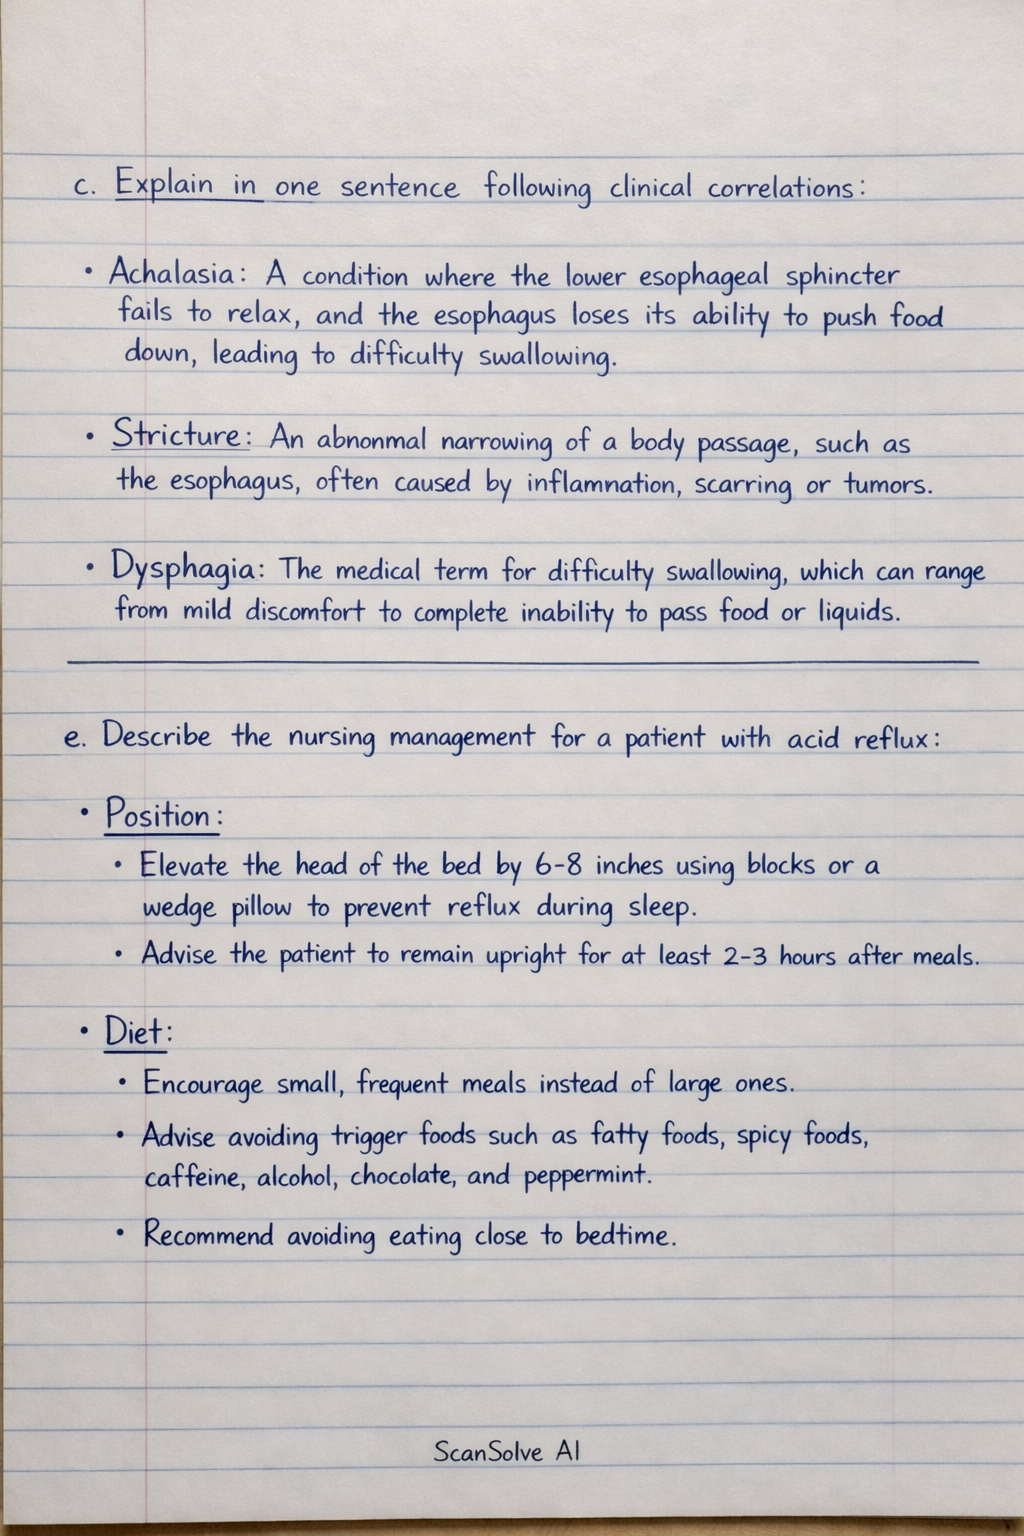 c. Explain in one sentence following clinical correlations:
• Achalasia: A condition where the lower esophageal sphincter
fails to relax, and the esophagus loses its ability to push food
down, leading to difficulty swallowing.
• Stricture: An abnonmal narrowing of a body passage, such as
the esophagus, often caused by inflamnation, scarring or tumors.
• Dysphagia: The medical term for difficulty swallowing, which can range
from mild discomfort to complete inability to pass food or liquids.
e. Describe the nursing management for a patient with acid reflux:
• Position:
• Elevate the head of the bed by 6-8 inches using blocks or a
wedge pillow to prevent reflux during sleep.
• Advise the patient to remain upright for at least 2-3 hours after meals.
• Diet:
• Encourage small, frequent meals instead of large ones.
• Advise avoiding trigger foods such as fatty foods, spicy foods,
caffeine, alcohol, chocolate, and peppermint.
• Recommend avoiding eating close to bedtime.
ScanSolve AI